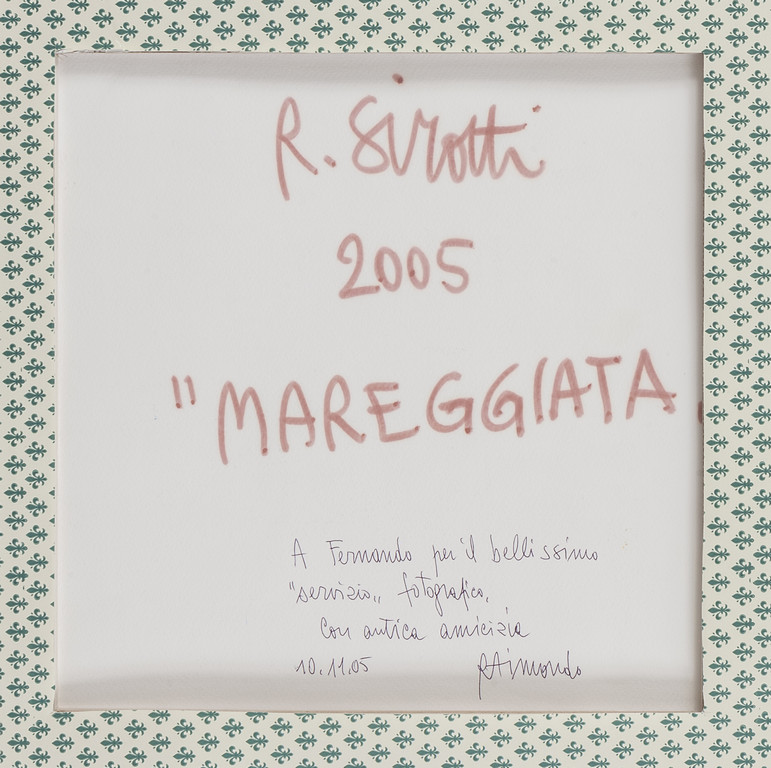 R. Sirotti
2005
"MAREGGIATA
A Fernando per il bellissimo
"servizio,, fotografico,
Con antica amicizia
10.11.05 RAimondo